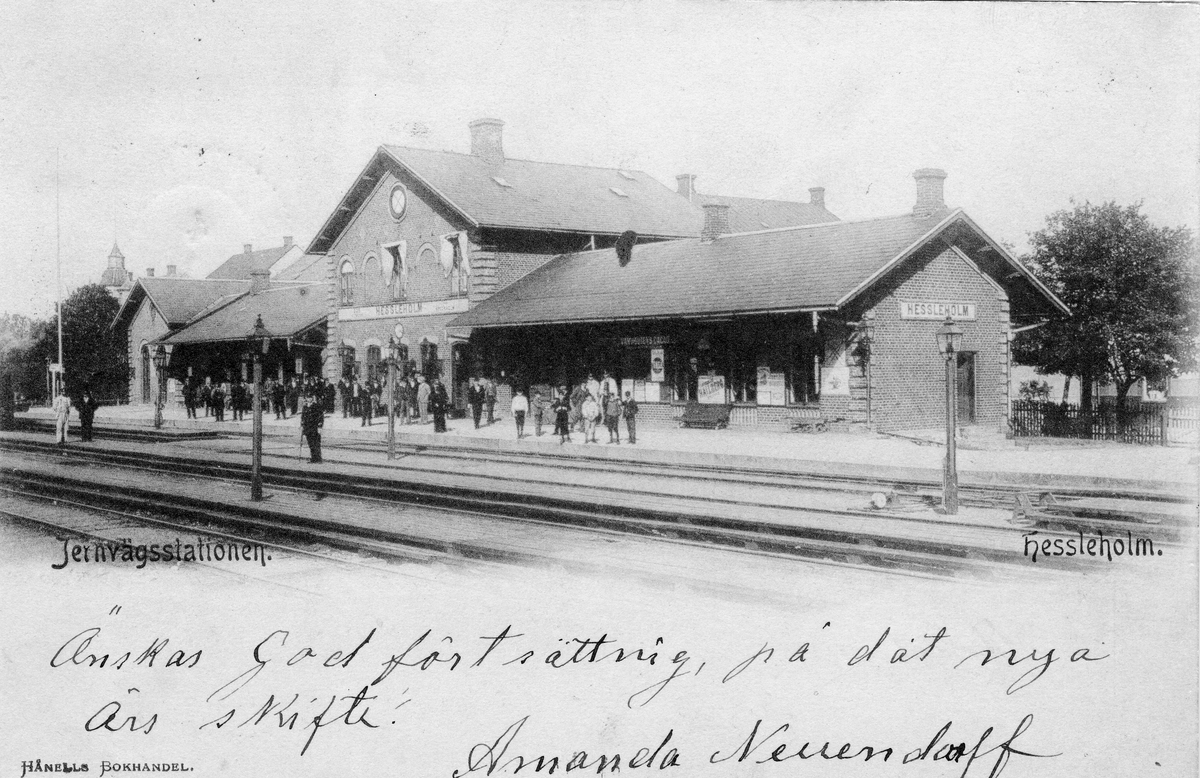 HESSLEHOLM
HESSLEHOLM
Jernvägsstationen.
Hessleholm.
Önskas God fört sättnig, på dät nya
Års skifte!
Amanda Neuendorff
HÅNELLS BOKHANDEL.